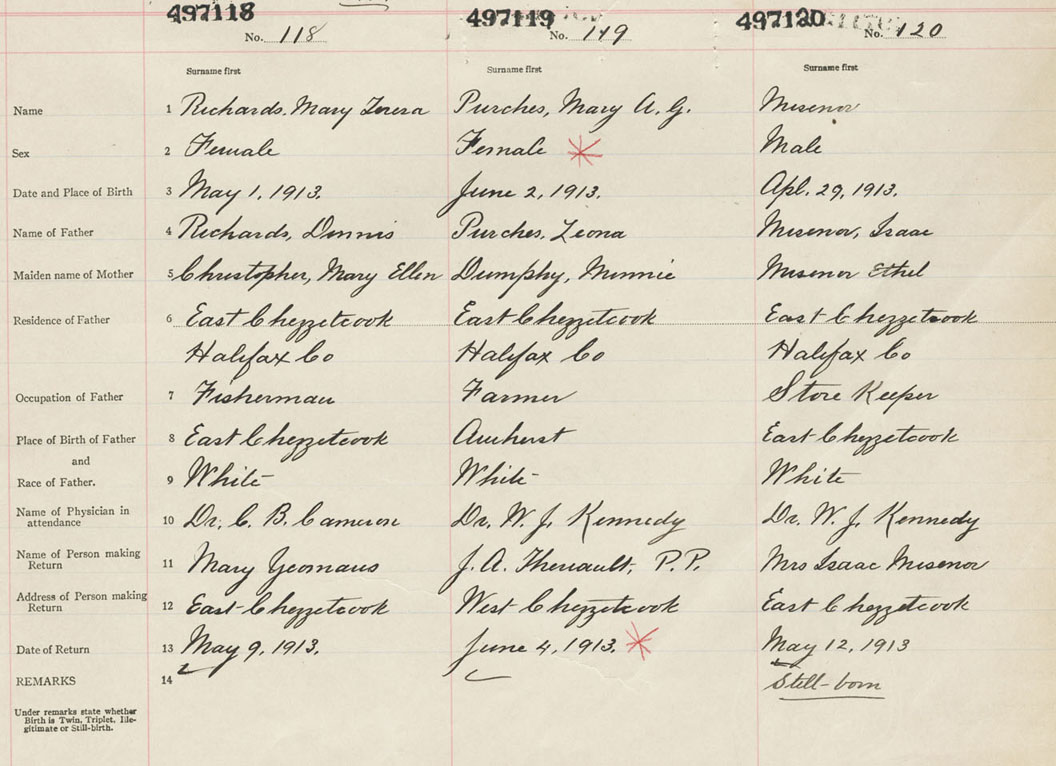 497118 497119 497120
No. 118 No. 119 No. 120
Surname first Surname first Surname first
Name 1 Richards. Mary Teresa Purches, Mary A. G. Misenor
Sex 2 Female Female Male
Date and Place of Birth 3 May 1, 1913. June 2, 1913. Apl. 29, 1913.
Name of Father 4 Richards, Dennis Purches, Leona Misenor, Isaac
Maiden name of Mother 5 Christopher, Mary Ellen Dumphy, Minnie Misenor Ethel
Residence of Father 6 East Chezzetcook East Chezzetcook East Chezzetcook
Halifax Co Halifax Co Halifax Co
Occupation of Father 7 Fisherman Farmer Store Keeper
Place of Birth of Father 8 East Chezzetcook Amherst East Chezzetcook
and
Race of Father. 9 White White White
Name of Physician in attendance 10 Dr. C. B. Cameron Dr. W. J. Kennedy Dr. W. J. Kennedy
Name of Person making Return 11 Mary Yeomans J. A. Theriault, P. P. Mrs Isaac Misenor
Address of Person making Return 12 East Chezzetcook West Chezzetcook East Chezzetcook
Date of Return 13 May 9, 1913. June 4, 1913. May 12, 1913
REMARKS 14 Still-born
Under remarks state whether
Birth is Twin, Triplet, Ille-
gitimate or Still-birth.